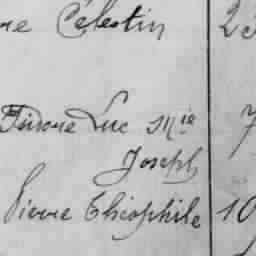 re Célestin 23
Pierre Luc Mie 7
Joseph
Pierre Théophile 10